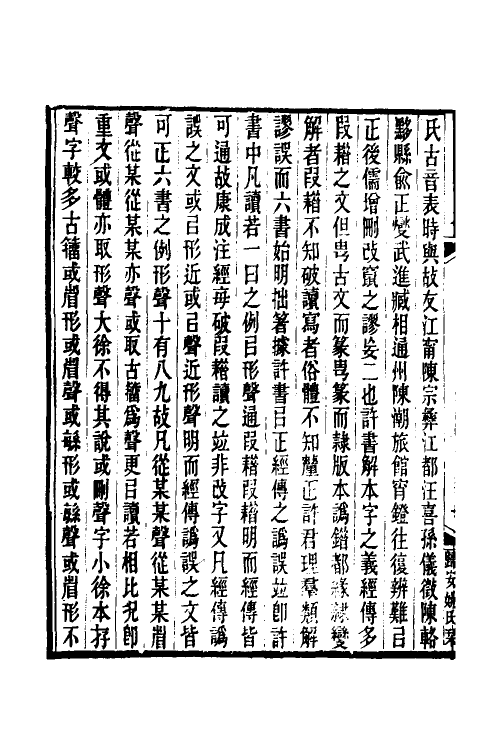 氏古音表時與故友江甯陳宗彝江都汪喜孫儀徵陳輅
黟縣俞正變武進臧相通州陳潮旅館宵鐙往復辨難㠯
正後儒增刪改竄之謬妄二也許書解本字之義經傳多
叚耤之文但㠯古文而篆㠯篆而隸版本譌鍇都緣隸變
解者叚耤不知破讀寫者俗體不知釐正許君理羣類解
謬誤而六書始明拙箸據許書㠯正經傳之譌誤竝卽許
書中凡讀若一曰之例㠯形聲通叚耤叚耤明而經傳皆
可通故康成注經每破叚耤讀之竝非改字又凡經傳譌
誤之文或㠯形近或㠯聲近形聲明而經傳譌誤之文皆
可正六書之例形聲十有八九故凡從某某聲從某某眉
聲從某從某某亦聲或取古籀爲聲更㠯讀若相比況卽
重文或體亦取形聲大徐不得其說或刪聲字小徐本存
聲字較多古籀或眉形或眉聲或緐形或緐聲或眉形不